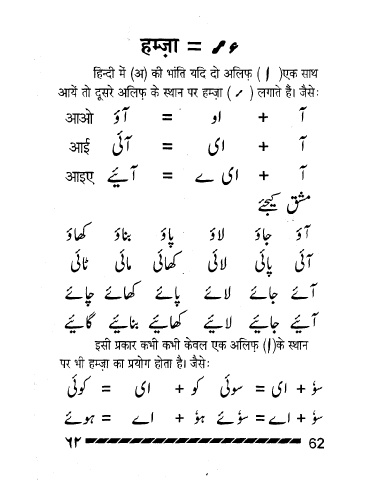 हमज़ा = ء ئ
हिन्दी में (अ) की भांति यदि दो अलिफ़ ( ا )एक साथ
आयें तो दूसरे अलिफ़ के स्थान पर हमज़ा ( ء ) लगाते हैं। जैसे:
आओ آؤ = او + آ
आई آئی = ای + آ
आइए آئیے = ای ے + آ
مشق کیجئے
آؤ جاؤ لاؤ پاؤ بناؤ کھاؤ
آئی پائی لائی کھائی مائی ٹائی
آئے جائے لائے پائے کھائے چائے
آئیے جائیے لائیے کھائیے بنائیے گائیے
इसी प्रकार कभी कभी केवल एक अलिफ़ (ا)के स्थान
पर भी हमज़ा का प्रयोग होता है। जैसे:
سؤ + ای = سوئی کو + ای = کوئی
سؤ + اے = سوئے ہؤ + اے = ہوئے
٦٢ 62